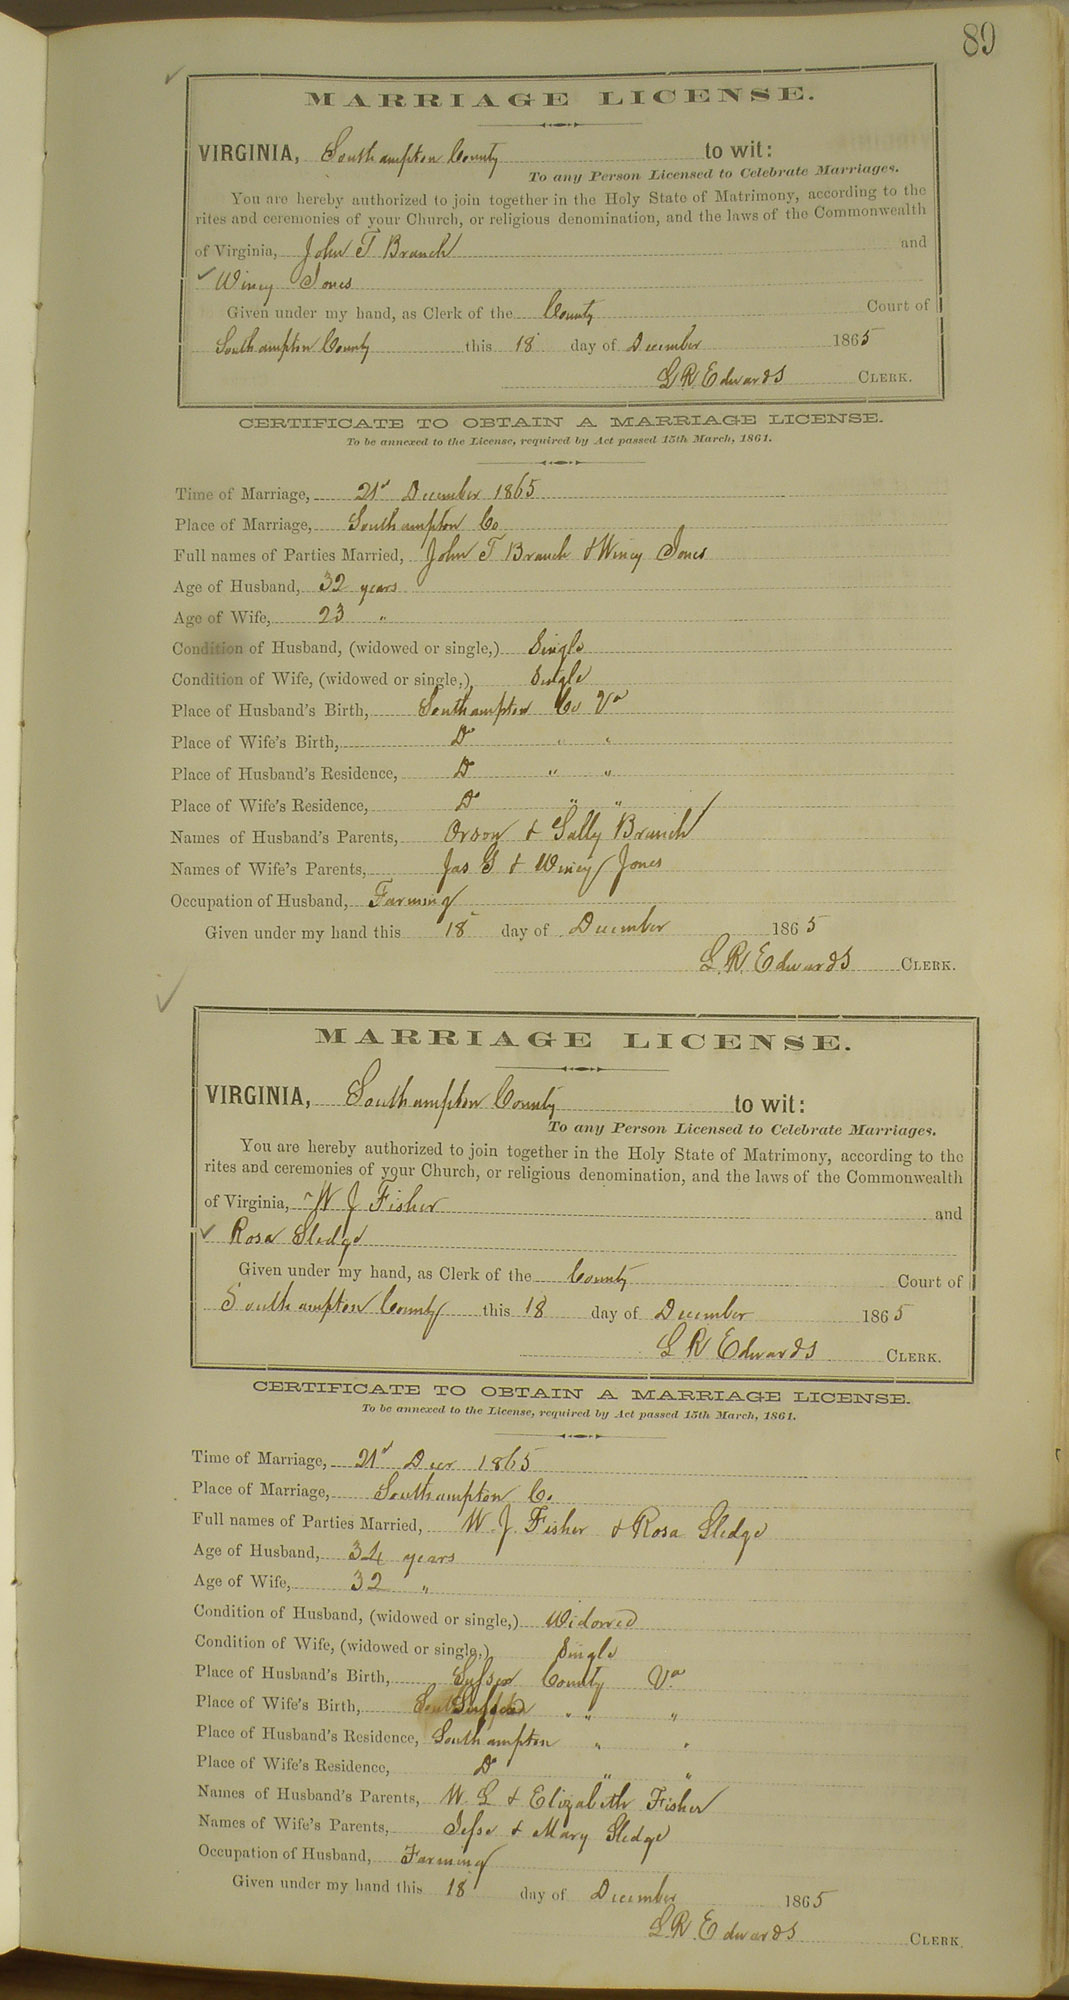 89
MARRIAGE LICENSE.
VIRGINIA, Southampton County to wit:
To any Person Licensed to Celebrate Marriages.
You are hereby authorized to join together in the Holy State of Matrimony, according to the
rites and ceremonies of your Church, or religious denomination, and the laws of the Commonwealth
of Virginia, John T Branch and
Winey Jones
Given under my hand, as Clerk of the County Court of
Southampton County this 18 day of December 1865
L R Edwards CLERK.
CERTIFICATE TO OBTAIN A MARRIAGE LICENSE.
To be annexed to the License, required by Act passed 15th March, 1861.
Time of Marriage, 21st December 1865
Place of Marriage, Southampton Co
Full names of Parties Married, John T Branch & Winey Jones
Age of Husband, 32 years
Age of Wife, 23 "
Condition of Husband, (widowed or single,) Single
Condition of Wife, (widowed or single,) Single
Place of Husband's Birth, Southampton Co Va
Place of Wife's Birth, Do " "
Place of Husband's Residence, Do " "
Place of Wife's Residence, Do " "
Names of Husband's Parents, Orson & Sally Branch
Names of Wife's Parents, Jas G & Winey Jones
Occupation of Husband, Farming
Given under my hand this 18 day of December 1865
L. R. Edwards CLERK.
MARRIAGE LICENSE.
VIRGINIA, Southampton County to wit:
To any Person Licensed to Celebrate Marriages.
You are hereby authorized to join together in the Holy State of Matrimony, according to the
rites and ceremonies of your Church, or religious denomination, and the laws of the Commonwealth
of Virginia, W J Fisher and
Rosa Sledge
Given under my hand, as Clerk of the County Court of
Southampton County this 18 day of December 1865
L R Edwards CLERK.
CERTIFICATE TO OBTAIN A MARRIAGE LICENSE.
To be annexed to the License, required by Act passed 15th March, 1861.
Time of Marriage, 21st Decr 1865
Place of Marriage, Southampton Co.
Full names of Parties Married, W. J. Fisher & Rosa Sledge
Age of Husband, 34 years
Age of Wife, 32 "
Condition of Husband, (widowed or single,) Widowed
Condition of Wife, (widowed or single,) Single
Place of Husband's Birth, Sussex County Va
Place of Wife's Birth, " " "
Place of Husband's Residence, Southampton " "
Place of Wife's Residence, Do " "
Names of Husband's Parents, W. L & Elizabeth Fisher
Names of Wife's Parents, Jesse & Mary Sledge
Occupation of Husband, Farming
Given under my hand this 18 day of December 1865
L. R. Edwards CLERK.